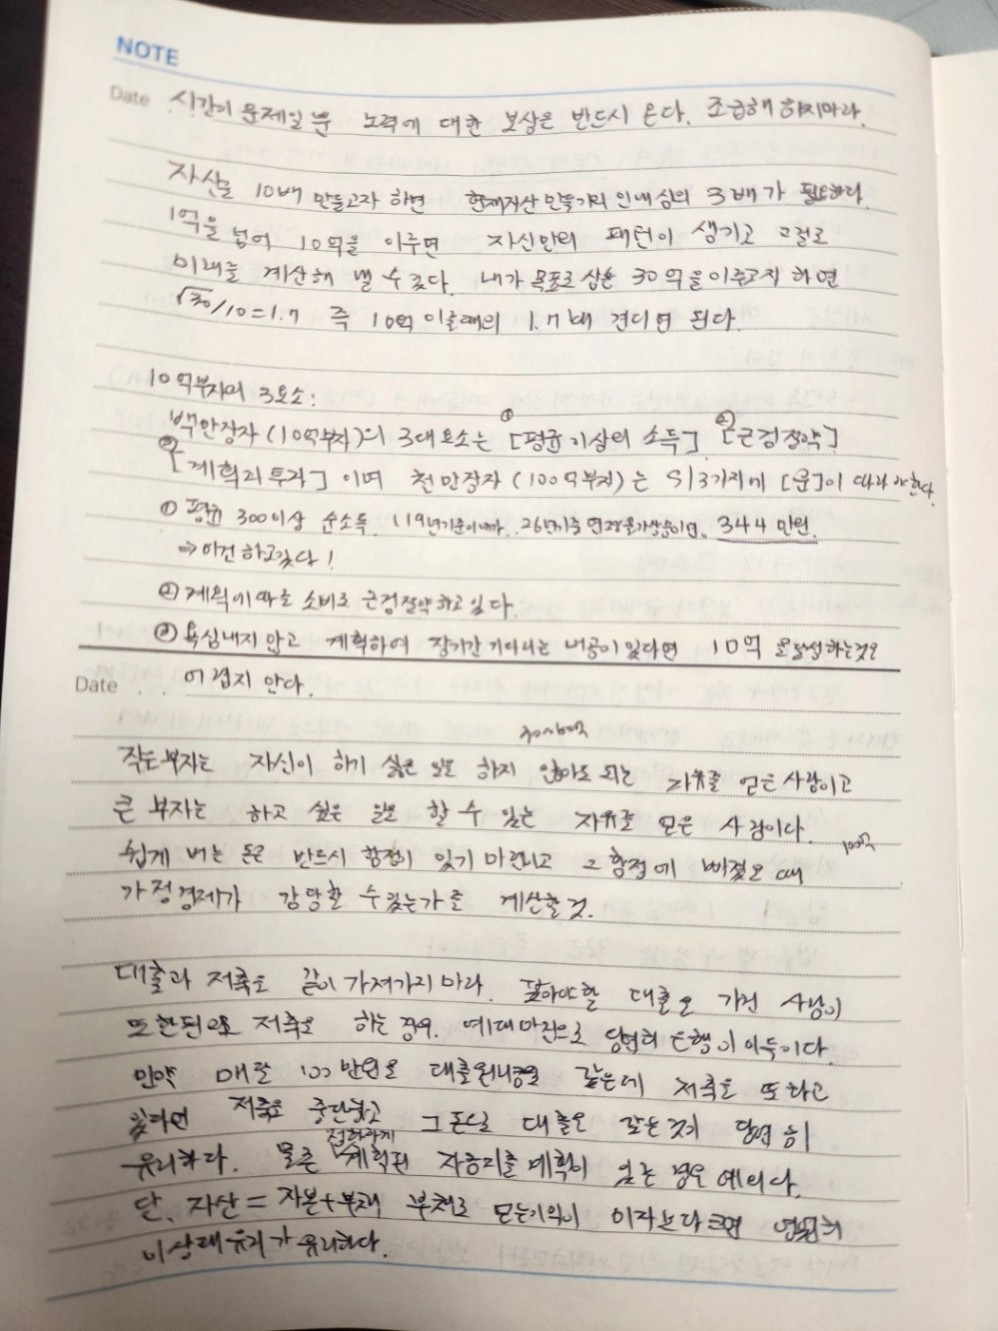 NOTE
Date 시간이 문제일 뿐 노력에 대한 보상은 반드시 온다. 조급해 하지마라.
자산을 10배 만들고자 하면 현재자산 만들기의 인내심의 3배가 필요하다.
1억을 넘어 10억을 이루면 자신만의 패턴이 생기고 그걸로
미래를 계산해 낼 수 있다. 내가 목표로 삼은 30억을 이루고자 하면
√30/10=1.7 즉 10억 이룰때의 1.7배 견디면 된다.
10억부자의 3요소:
백만장자(10억부자)의 3대 요소는 ①[평균이상의 소득], ②[근검절약]
③[계획과 투자] 이며 천만장자(100억부자)는 위 3가지에 [운]이 따라야한다.
① 평균 300이상 순소득 (19년기준이니까.. 26년기준 344만원.
⇒ 이건 하고있다!
② 계획에 따른 소비로 근검절약하고 있다.
③ 욕심내지 않고 계획하여 장기간 기다리는 내공이 있다면 10억을 달성하는것은
Date 어렵지 않다.
30~60억
작은부자는 자신이 하기 싫은 일을 하지 않아도 되는 자유를 얻은 사람이고
큰 부자는 하고 싶은 일을 할 수 있는 자유를 얻은 사람이다.
100억
쉽게 버는 돈은 반드시 함정이 있기 마련이고 그 함정에 빠졌을 때
가정경제가 감당할 수 있는가를 계산할것.
대출과 저축을 같이 가져가지 마라. 갚아야할 대출을 가진 사람이
또한편으로 저축을 하는 경우. 예대마진으로 당연히 은행이 이득이다.
만약 매달 100만원을 대출원리금을 갚는데 저축을 또 하고
있다면 저축을 중단하고 그 돈으로 대출을 갚는 것이 당연히
유리하다. 물론 정확하게 계획된 자금지출 계획이 있는 경우 예외다.
단, 자산 = 자본+부채 부채로 얻는이익이 이자보다 크면 당연히
이상태유지가 유리하다.